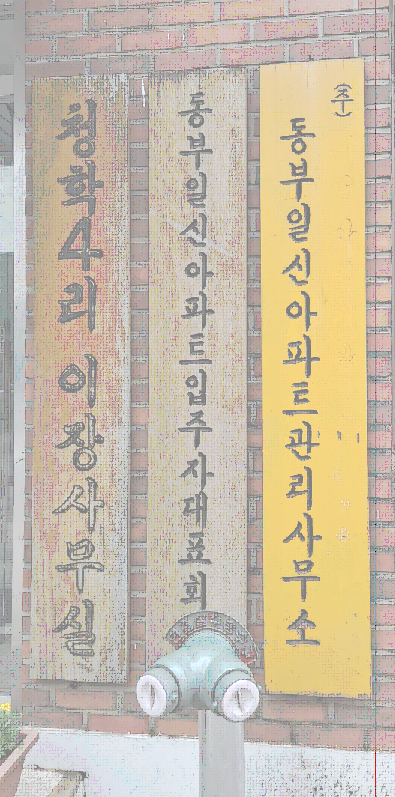 청학4리 이장사무실
동부일신아파트입주자대표회
(주)
동부일신아파트관리사무소